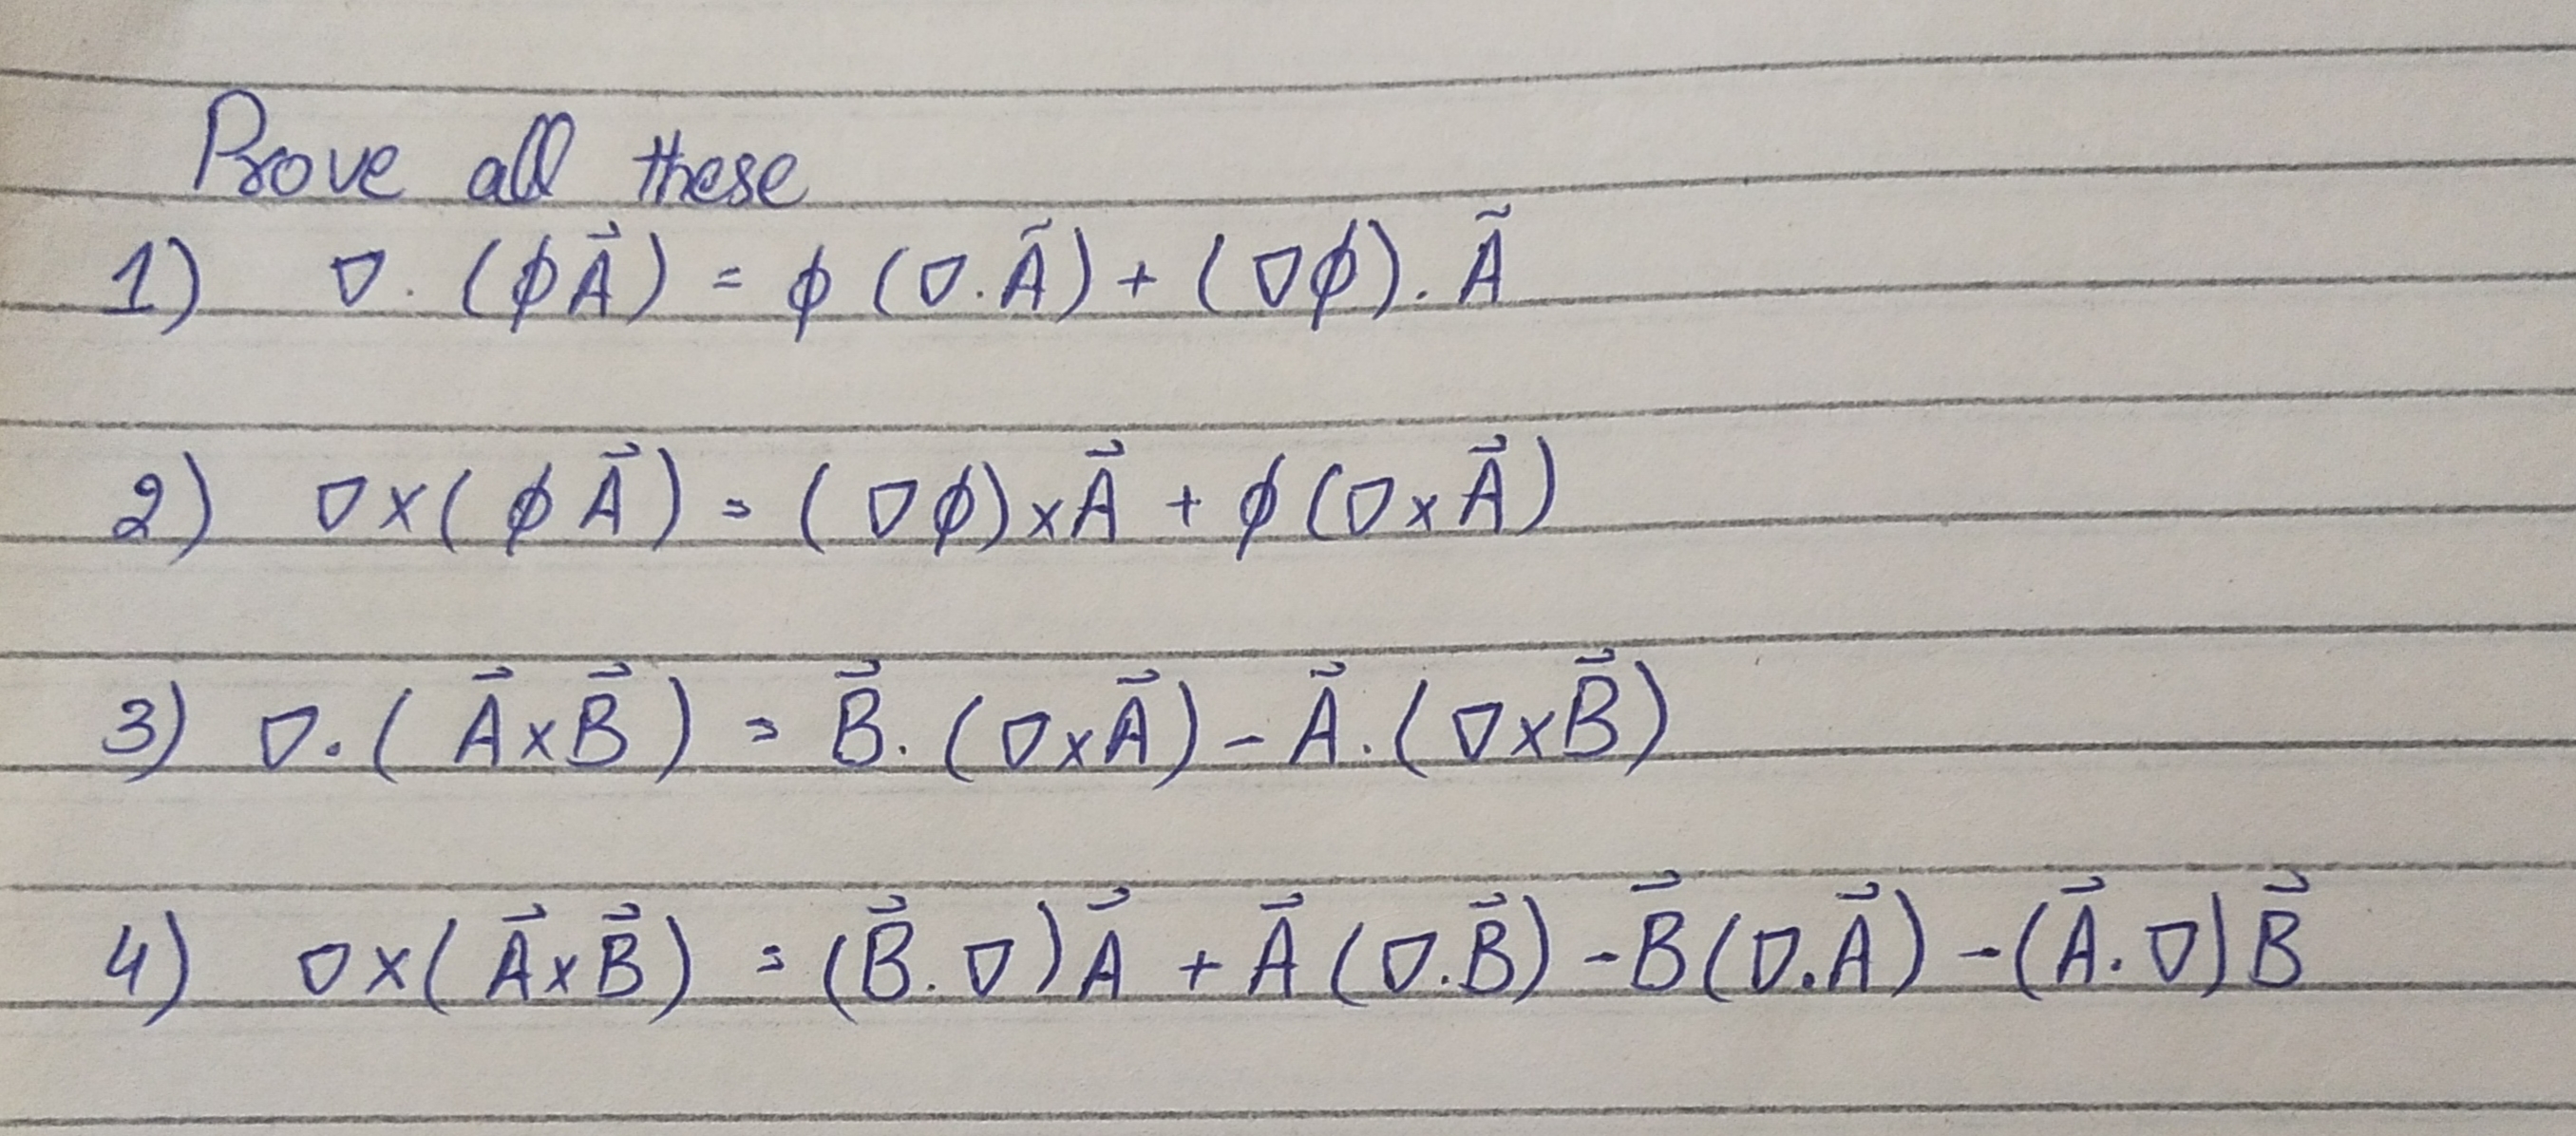 Prove all these
1) ∇. (ϕA⃗) = ϕ (∇.A⃗) + (∇ϕ). A⃗
2) ∇×(ϕA⃗) = (∇ϕ)×A⃗ + ϕ(∇×A⃗)
3) ∇.(A⃗×B⃗) = B⃗.(∇×A⃗) - A⃗.(∇×B⃗)
4) ∇×(A⃗×B⃗) = (B⃗.∇)A⃗ + A⃗(∇.B⃗) - B⃗(∇.A⃗) - (A⃗.∇)B⃗